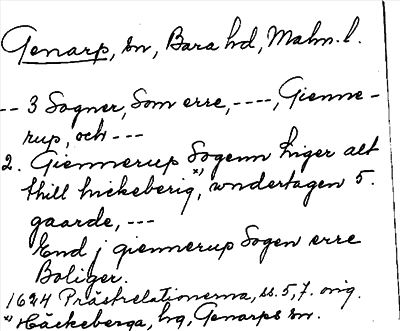 Genarp, sn, Bara hd, Malm. l.
-- 3 Sogner, Som erre, ----, Gienne-
rup, och ---
2. Giennerup Sogenn higer alt
thill hickeberig*), wndertagen 5.
gaarde, ---
End j giennerup Sogen erre
Boliger.
1624 Prästrelationerna, ss. 5, 7. orig.
*) Häckeberga, hg, Genarps sn.